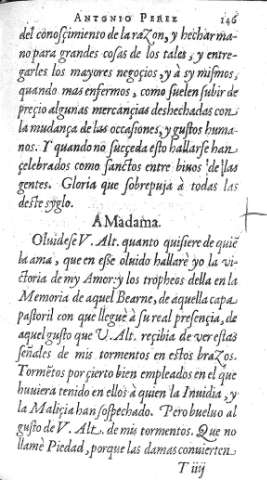 ANTONIO PEREZ 146
del conosçimiento de la razon, y hechar ma-
no para grandes cosas de los tales, y entre-
garles los mayores negoçios, y à sy mismos,
quando mas enfermos, como suelen subir de
preçio algunas mercançias deshechadas con
la mudança de las occasiones, y gustos huma-
nos. Y quando no suçeda esto hallarse han
çelebrados como sanctos entre biuos de las
gentes. Gloria que sobrepuja à todas las
deste syglo.
A Madama.
Oluidese V. Alt. quanto quisiere de quiē
la ama, que en esse oluido hallarè yo la vi-
ctoria de my Amor: y los tropheos della en la
Memoria de aquel Bearne, de aquella capa
pastoril con que lleguè à su real presençia, de
aquel gusto que V. Alt. reçibia de ver estas
señales de mis tormentos en estos brazos.
Tormētos por çierto bien empleados en el que
huuiera tenido en ellos à quien la Inuidia, y
la Maliçia han sospechado. Pero bueluo al
gusto de V. Alt. de mis tormentos. Que no
llamè Piedad, porque las damas conuierten
T iiij